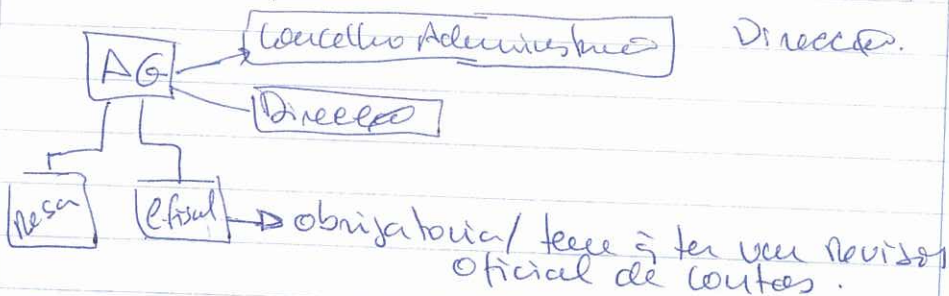 Concelho Administração Direcção.
AG
Direcção
Mesa C. fiscal obrigatoria/ tem q ter um Revisor
Oficial de Contas.